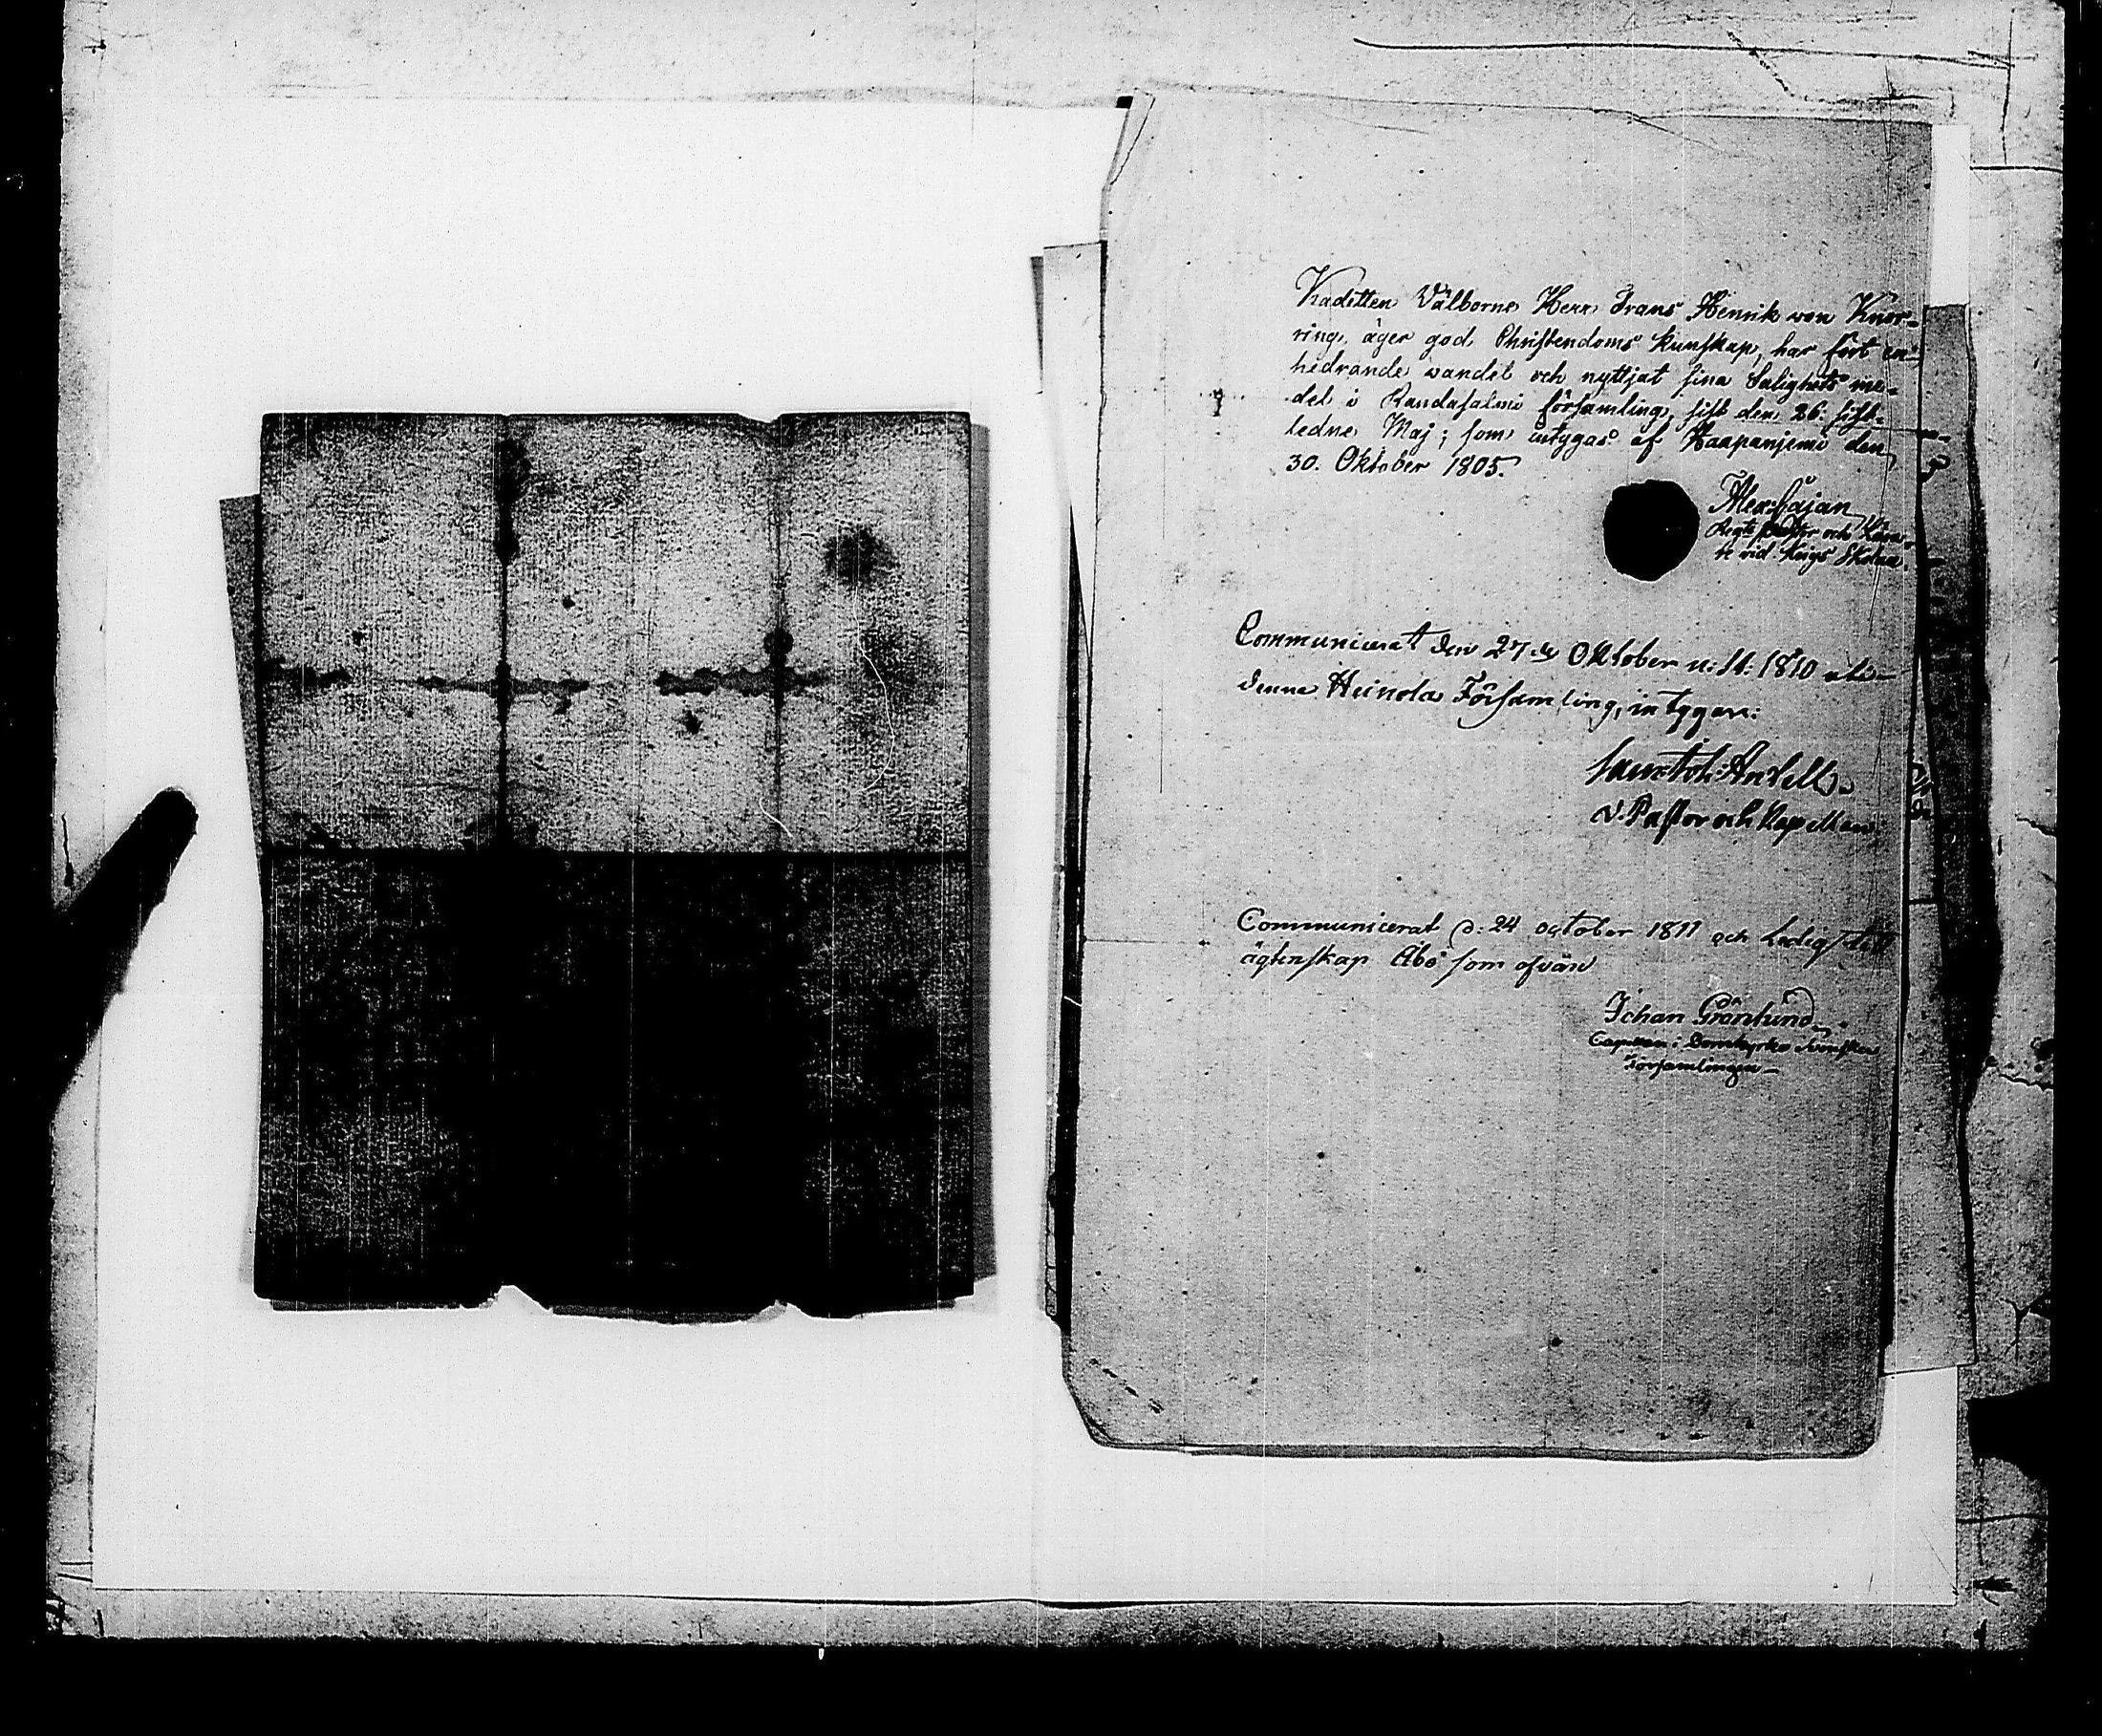 Kadetten Välborne Herr Frans Henrik von Knor-
ring, äger god Christendoms kunskap, har fört en
hedrande vandel och nyttjat sina Salighets me-
del i Randasalmi församling, sist den 26. sist-
ledne Maj; som intygas af Haapaniemi den
30. Oktober 1805.
Alex: Cajan
Regts Pastor och Lära-
re vid Krigs Skolan.
Communicerat den 27de Oktober n: st: 1810 uti
denne Heinola Församling, intygar:
Antell
V. Pastor och Kapellan
Communicerat d: 24 october 1811 och Ledig till
ägtenskap Åbo som ofvan
Johan Grönlund
Capellan i Domkyrko Svenska
Församlingen